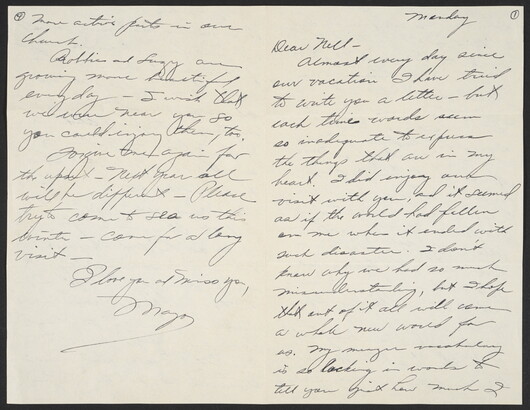 ①
Monday
Dear Nell -
Almost every day since
our vacation I have tried
to write you a letter - but
each time words seem
so inadequate to express
the things that are in my
heart. I did enjoy our
visit with you, and it seemed
as if the world had fallen
on me when it ended with
such disaster. I don't
know why we had so much
misunderstanding, but I hope
that out of it all will come
a whole new world for
us. My meager vocabulary
is so lacking in words to
tell you just how much I
④
more active parts in our
church.
Bobbie and Suzy are
growing more beautiful
every day - I wish that
we were near you so
you could enjoy them, too.
Forgive me again for
the upset - Next year all
will be different - Please
try to come to see us this
winter - come for a long
visit -
I love you and miss you,